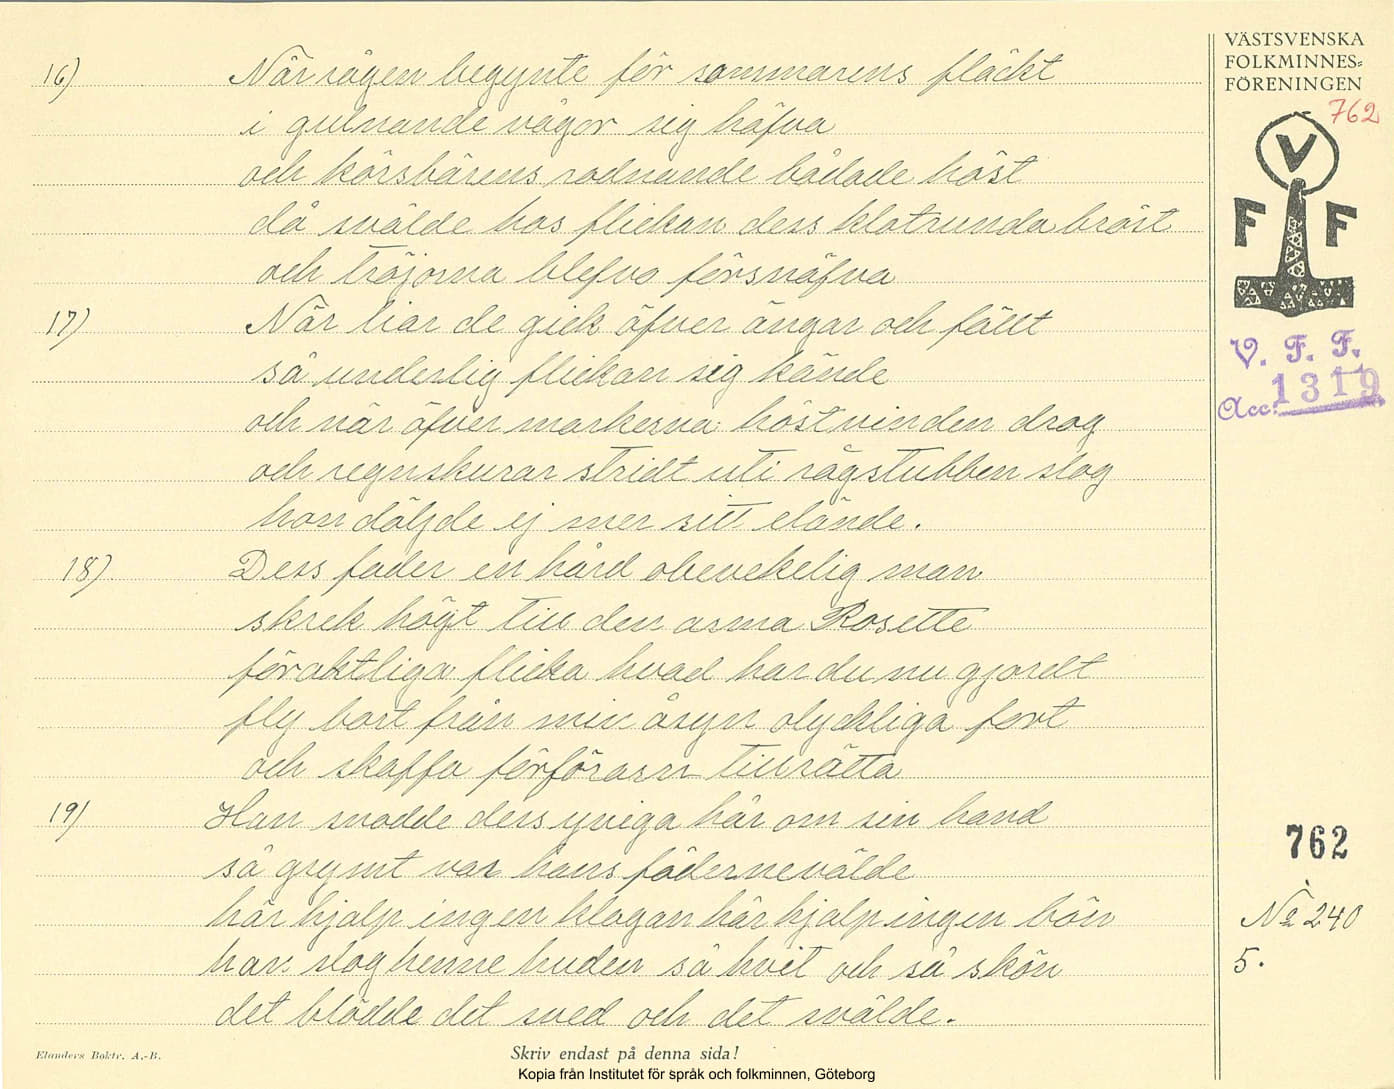 VÄSTSVENSKA
FOLKMINNES=
FÖRENINGEN
762
V
F F
V. F. F.
Acc: 1319
16) När rågen begynte för sommarens fläckt
i gulnande vågor sig häfva
och körsbärens rodnande bådade höst
då svälde hos flickan dess klotrunda bröst
och tröjorna blefvo försnäfva
17) När liar de gick öfver ängar och fällt
så underlig flickan sig kände
och när öfver markerna höstvinden drog
och regnskurar stridt uti rågstubben slog
hon döljde ej mer sitt elände.
18) Dess fader en hård obevekelig man
skrek högt till den arma Rosette
föraktliga flicka hvad har du nu gjordt
fly bort från min åsyn olyckliga fort
och skaffa förförarn tillrätta
19) Han snodde dess yviga hår om sin hand
så grymt var hans fädernevälde
här hjalp ingen klagan här hjalp ingen bön
han slog henne huden så hvit och så skön
det blödde det sved och det svälde.
762
No 240
5.
Elanders Boktr. A.-B.
Skriv endast på denna sida!
Kopia från Institutet för språk och folkminnen, Göteborg